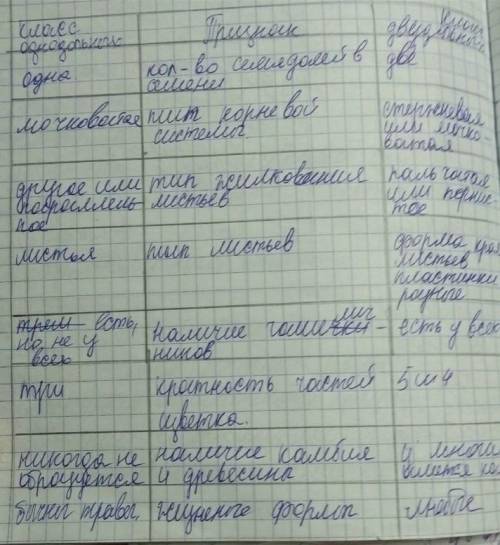 класс
однодольные
Признак
класс
двудольные
одна
кол-во семядолей в
семени
две
мочковатая
тип корневой
системы
стержневая
или мочко-
ватая
или
тип жилкования
листьев
пальчатое
или перис-
тое
тип листьев
форма
листьев
пластинки
разные
есть,
но не у
всех
наличие
ников
есть у всех
три
кратность частей
цветка.
5 и 4
никогда не
образуется
наличие камбия
и древесины
у многих
травы,
жизненые формы
любые